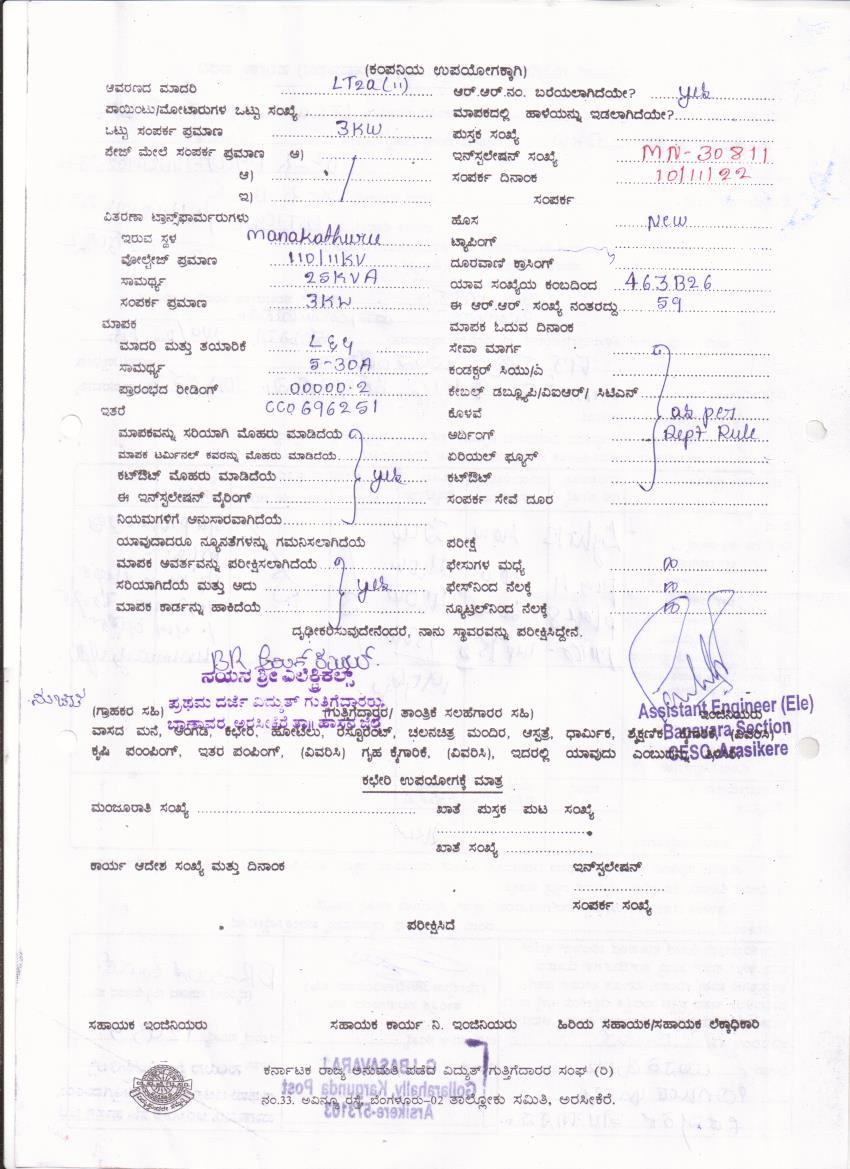 (ಕಂಪನಿಯ ಉಪಯೋಗಕ್ಕಾಗಿ)
ಆವರಣದ ಮಾದರಿ LT2a(ii)
ಪಾಯಿಂಟು/ಮೋಟಾರುಗಳ ಒಟ್ಟು ಸಂಖ್ಯೆ
ಒಟ್ಟು ಸಂಪರ್ಕ ಪ್ರಮಾಣ 3KW
ಪೇಜ್ ಮೇಲೆ ಸಂಪರ್ಕ ಪ್ರಮಾಣ ಅ)
ಆ)
ಇ)
ವಿತರಣಾ ಟ್ರಾನ್ಸ್‌ಫಾರ್ಮರುಗಳು
ಇರುವ ಸ್ಥಳ Manakathuru
ವೋಲ್ಟೇಜ್ ಪ್ರಮಾಣ 110/11KV
ಸಾಮರ್ಥ್ಯ 25KVA
ಸಂಪರ್ಕ ಪ್ರಮಾಣ 3KW
ಮಾಪಕ
ಮಾದರಿ ಮತ್ತು ತಯಾರಿಕೆ L&G
ಸಾಮರ್ಥ್ಯ 5-30A
ಪ್ರಾರಂಭದ ರೀಡಿಂಗ್ 00000.2
ಇತರೆ CC0696251
ಮಾಪಕವನ್ನು ಸರಿಯಾಗಿ ಮೊಹರು ಮಾಡಿದೆಯೆ
ಮಾಪಕ ಟರ್ಮಿನಲ್ ಕವರನ್ನು ಮೊಹರು ಮಾಡಿದೆಯೆ
ಕಟ್‌ಔಟ್ ಮೊಹರು ಮಾಡಿದೆಯೆ yes
ಈ ಇನ್‌ಸ್ಟಲೇಷನ್ ವೈರಿಂಗ್
ನಿಯಮಗಳಿಗೆ ಅನುಸಾರವಾಗಿದೆಯೆ
ಯಾವುದಾದರೂ ನ್ಯೂನತೆಗಳನ್ನು ಗಮನಿಸಲಾಗಿದೆಯೆ
ಮಾಪಕ ಅವರ್ತವನ್ನು ಪರೀಕ್ಷಿಸಲಾಗಿದೆಯೆ
ಸರಿಯಾಗಿದೆಯೆ ಮತ್ತು ಅದು yes
ಮಾಪಕ ಕಾರ್ಡನ್ನು ಹಾಕಿದೆಯೆ
ಆರ್.ಆರ್.ನಂ. ಬರೆಯಲಾಗಿದೆಯೇ? yes
ಮಾಪಕದಲ್ಲಿ ಹಾಳೆಯನ್ನು ಇಡಲಾಗಿದೆಯೇ?
ಪುಸ್ತಕ ಸಂಖ್ಯೆ
ಇನ್‌ಸ್ಟಲೇಷನ್ ಸಂಖ್ಯೆ MN-30811
ಸಂಪರ್ಕ ದಿನಾಂಕ 10/11/22
ಸಂಪರ್ಕ
ಹೊಸ New
ಟ್ಯಾಪಿಂಗ್
ದೂರವಾಣಿ ಕ್ರಾಸಿಂಗ್
ಯಾವ ಸಂಖ್ಯೆಯ ಕಂಬದಿಂದ 463B26
ಈ ಆರ್.ಆರ್. ಸಂಖ್ಯೆ ನಂತರದ್ದು 59
ಮಾಪಕ ಓದುವ ದಿನಾಂಕ
ಸೇವಾ ಮಾರ್ಗ
ಕಂಡಕ್ಟರ್ ಸಿಯು/ಎ
ಕೇಬಲ್ ಡಬ್ಲ್ಯೂಪಿ/ವಿಐಆರ್/ ಸಿಟಿಎಸ್
ಕೊಳವೆ as per
ಅರ್ದಿಂಗ್ Dept Rule
ಏರಿಯಲ್ ಫ್ಯೂಸ್
ಕಟ್‌ಔಟ್
ಸಂಪರ್ಕ ಸೇವೆ ದೂರ
ಪರೀಕ್ಷೆ
ಫೇಸುಗಳ ಮಧ್ಯೆ
ಫೇಸ್‌ನಿಂದ ನೆಲಕ್ಕೆ
ನ್ಯೂಟ್ರಲ್‌ನಿಂದ ನೆಲಕ್ಕೆ
ದೃಢೀಕರಿಸುವುದೇನೆಂದರೆ, ನಾನು ಸ್ಥಾವರವನ್ನು ಪರೀಕ್ಷಿಸಿದ್ದೇನೆ.
ನಯನ ಶ್ರೀ ಎಲೆಕ್ಟ್ರಿಕಲ್ಸ್
ಪ್ರಥಮ ದರ್ಜೆ ವಿದ್ಯುತ್ ಗುತ್ತಿಗೆದಾರರು
ಬಾಣಾವರ, ಅರಸೀಕೆರೆ ತಾ॥ ಹಾಸನ ಜಿಲ್ಲೆ
(ಗ್ರಾಹಕರ ಸಹಿ) (ಗುತ್ತಿಗೆದಾರರ/ ತಾಂತ್ರಿಕ ಸಲಹೆಗಾರರ ಸಹಿ) ಇಂಜಿನಿಯರು
Assistant Engineer (Ele)
Banavara Section
CESC, Arasikere
ವಾಸದ ಮನೆ, ಅಂಗಡಿ, ಕಛೇರಿ, ಹೋಟೆಲು, ರೆಸ್ಟೊರೆಂಟ್, ಚಲನಚಿತ್ರ ಮಂದಿರ, ಆಸ್ಪತ್ರೆ, ಧಾರ್ಮಿಕ, ಶೈಕ್ಷಣಿಕ, ಕೈಗಾರಿಕೆ, (ವಿವರಿಸಿ)
ಕೃಷಿ ಪಂಪಿಂಗ್, ಇತರ ಪಂಪಿಂಗ್, (ವಿವರಿಸಿ) ಗೃಹ ಕೈಗಾರಿಕೆ, (ವಿವರಿಸಿ), ಇದರಲ್ಲಿ ಯಾವುದು ಎಂಬುದನ್ನು
ಕಛೇರಿ ಉಪಯೋಗಕ್ಕೆ ಮಾತ್ರ
ಮಂಜೂರಾತಿ ಸಂಖ್ಯೆ ಖಾತೆ ಪುಸ್ತಕ ಪುಟ ಸಂಖ್ಯೆ
ಖಾತೆ ಸಂಖ್ಯೆ
ಕಾರ್ಯ ಆದೇಶ ಸಂಖ್ಯೆ ಮತ್ತು ದಿನಾಂಕ ಇನ್‌ಸ್ಟಲೇಷನ್
ಸಂಪರ್ಕ ಸಂಖ್ಯೆ
ಪರೀಕ್ಷಿಸಿದೆ
ಸಹಾಯಕ ಇಂಜಿನಿಯರು ಸಹಾಯಕ ಕಾರ್ಯ ನಿ. ಇಂಜಿನಿಯರು ಹಿರಿಯ ಸಹಾಯಕ/ಸಹಾಯಕ ಲೆಕ್ಕಾಧಿಕಾರಿ
ಕರ್ನಾಟಕ ರಾಜ್ಯ ಅನುಮತಿ ಪಡೆದ ವಿದ್ಯುತ್ ಗುತ್ತಿಗೆದಾರರ ಸಂಘ (ರಿ)
ನಂ.33. ಅವಿನ್ಯೂ ರಸ್ತೆ, ಬೆಂಗಳೂರು-02 ತಾಲ್ಲೋಕು ಸಮಿತಿ, ಅರಸೀಕೆರೆ.